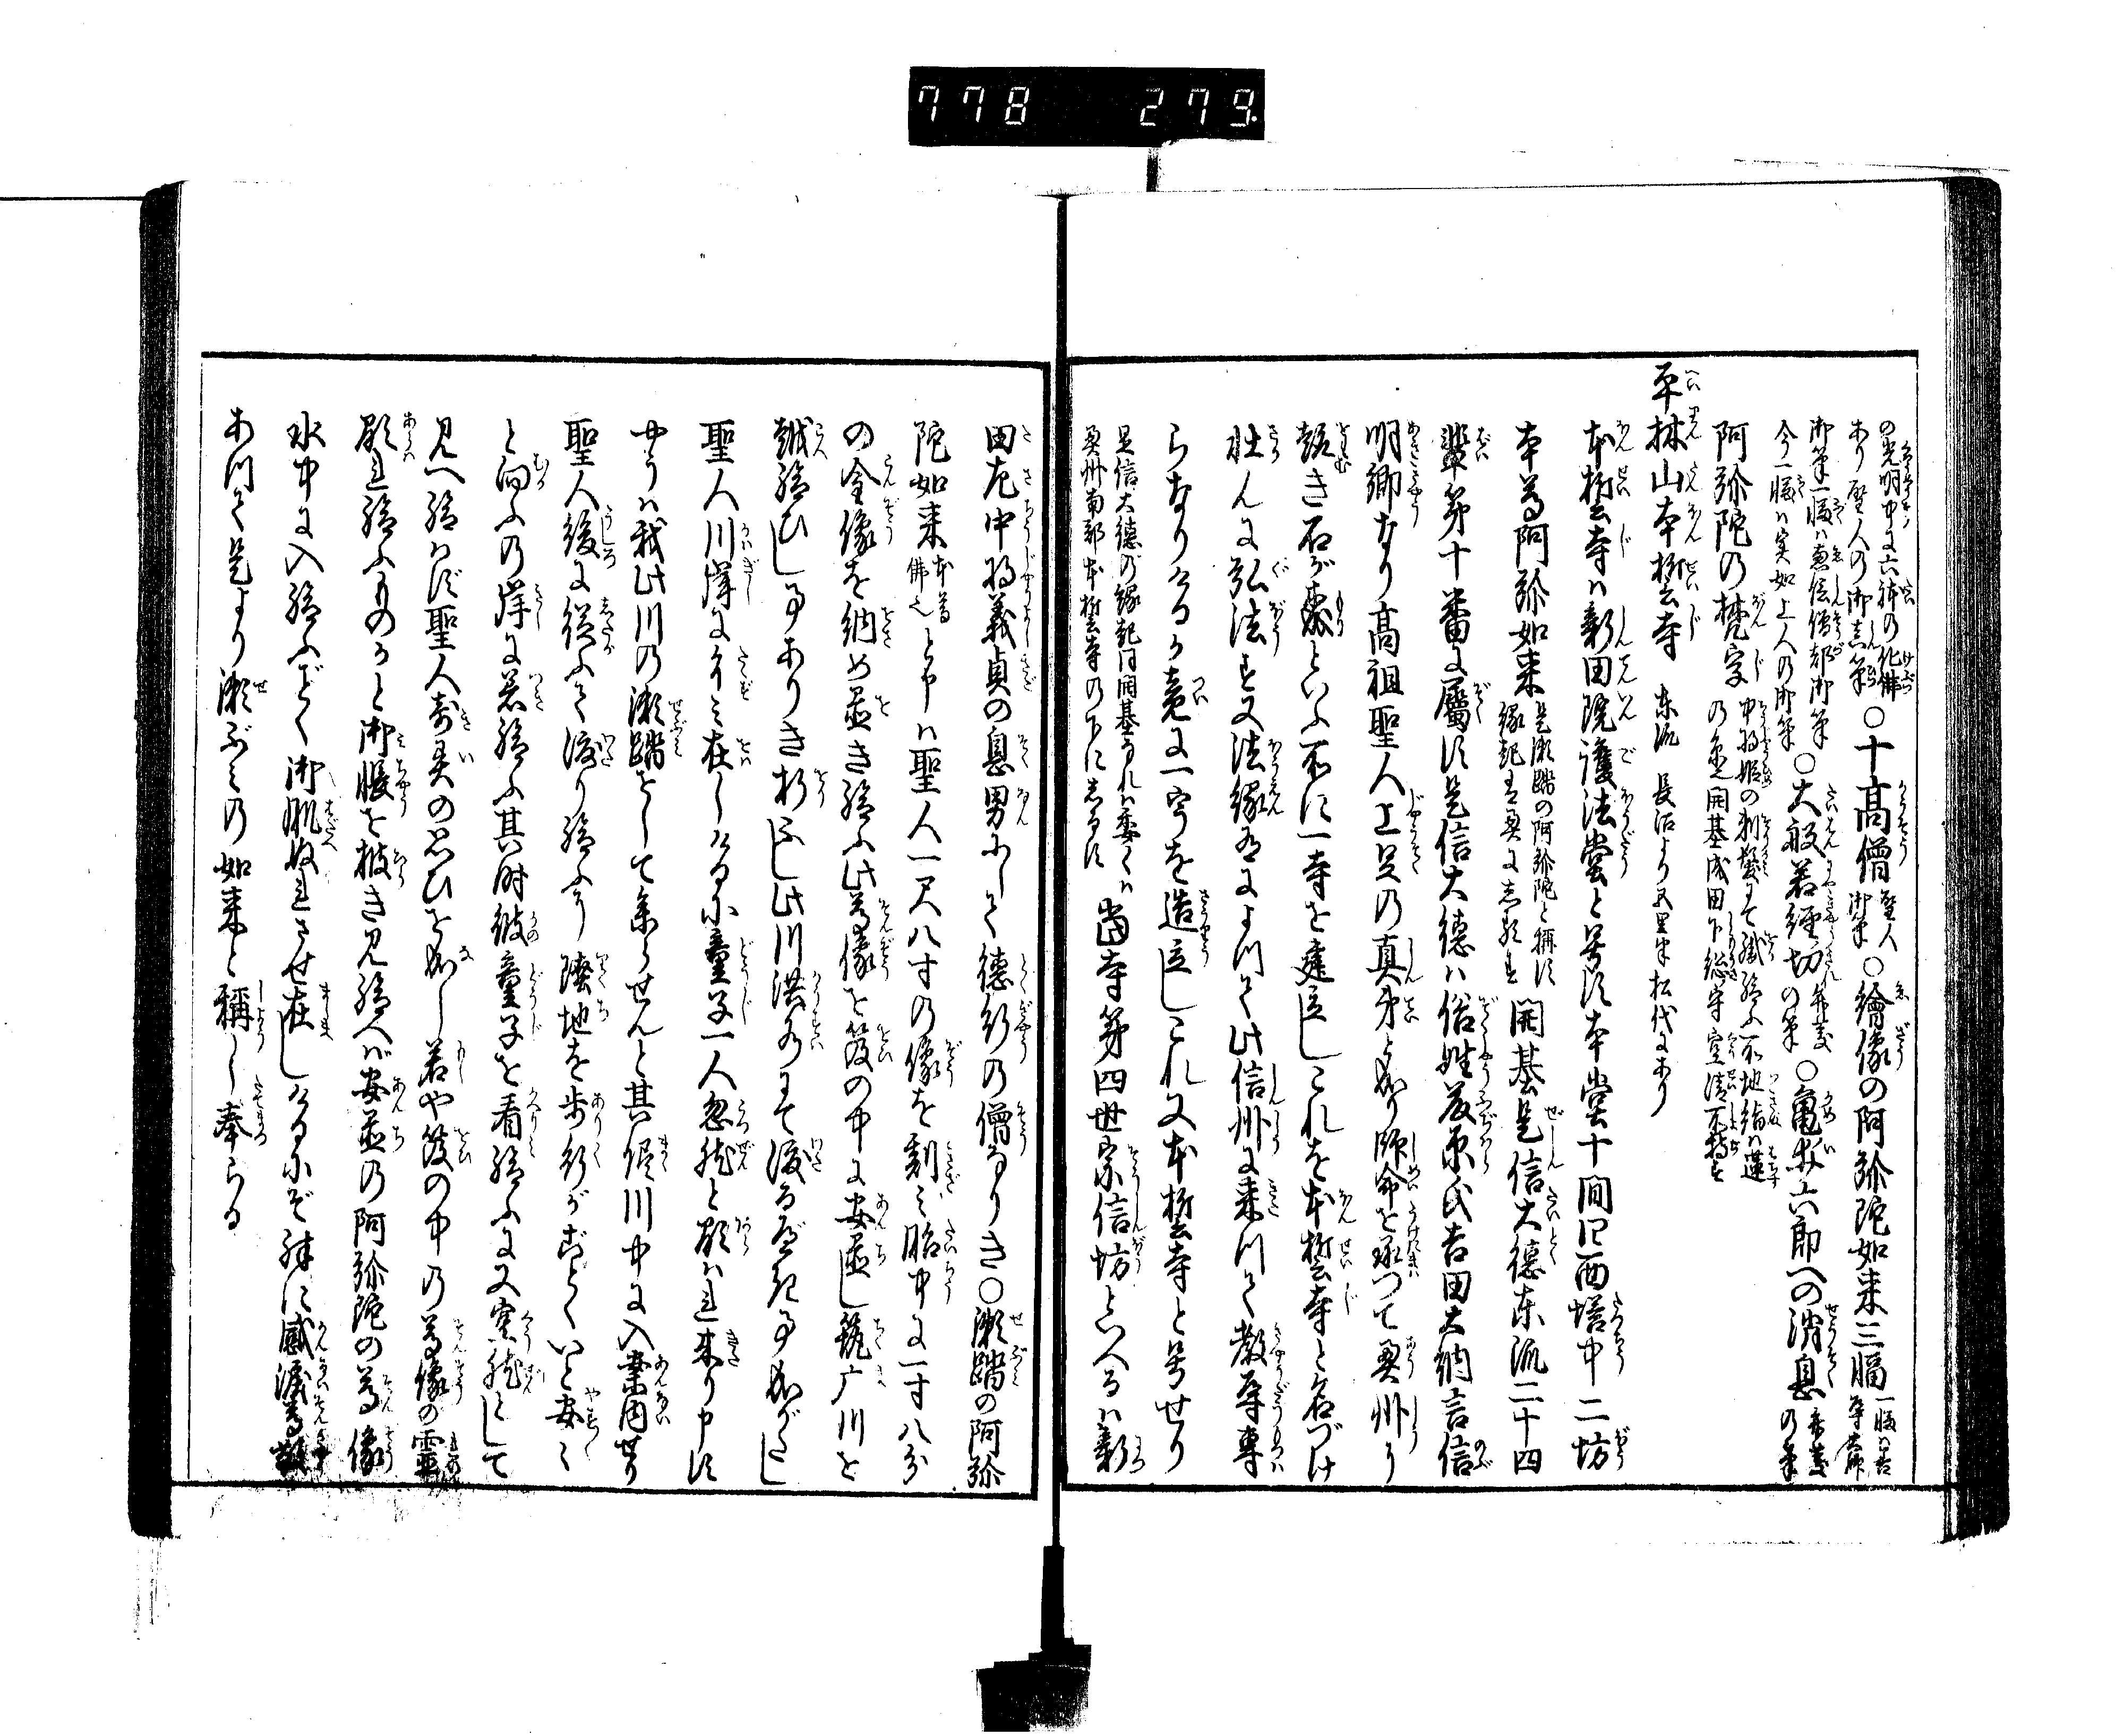 778 279.
の光明中に六体の化佛あり聖人の御真筆○十高僧聖人御筆○繪像の阿弥陀如来三幅一幅ハ善導大師
御筆一幅ハ恵信僧都御筆今一幅ハ実如上人の御筆○大般若經切の筆○亀井六郎への消息弁慶の筆
阿弥陀の梵字中将姫の剃髪にて織給ふ不地結ハ蓮の糸開基成田下総守室清不持す
平林山本誓寺 東派 長沼より五里半松代にあり
本誓寺ハ新田院護法堂と号す本堂十間四面塔中二坊
本尊阿弥陀如来是瀬踏の阿弥陀と称す縁起は奥に志るす 開基是信大徳東派二十四
輩第十番に属す是信大徳ハ俗姓藤原氏吉田大納言信
明卿なり高祖聖人上足の真弟となり師命を承つて奥州
石が森といふ所に一寺を建立しこれを本誓寺と名づけ
壮んに弘法す又法縁によつて此信州に来つて教導専
らなりけるが竟に一宇を造立しこれ又本誓寺と号せり
是信大徳の縁起同開基なれハ委くハ奥州南部本誓寺の下に志るす 當寺第四世宗信坊といへるハ新
田左中将義貞の息男にして徳行の僧なりき○瀬踏の阿弥
陀如来本尊佛也と申ハ聖人一尺八寸の像を刻ミ胎中に一寸八分
の金像を納め置き給ふ此尊像を笈の中に安置し筑广川を
越給ひし事ありき折ふし此川洪水にて渡るべき事かたし
聖人川岸にたたずミ在しける小童子一人忽然と顕ハれ来り申す
やうハ我此川の瀬踏をして参らせんと其侭川中に入案内せり
聖人後に従ふて渡り給ふに陸地を歩行がごとくいと安く
と向ふの岸に着給ふ其時彼童子を看給ふに又空然として
見へ給ハず聖人奇異の思ひをなし若や笈の中の尊像の霊
顕れ給ふものかと御帳を披き見給へバ安置の阿弥陀の尊像
水中に入給ふごとく御肌ぬれさせ在しける小ぞ殊に感涙尊敬
あつて是より瀬ぶミの如来と稱し奉らる